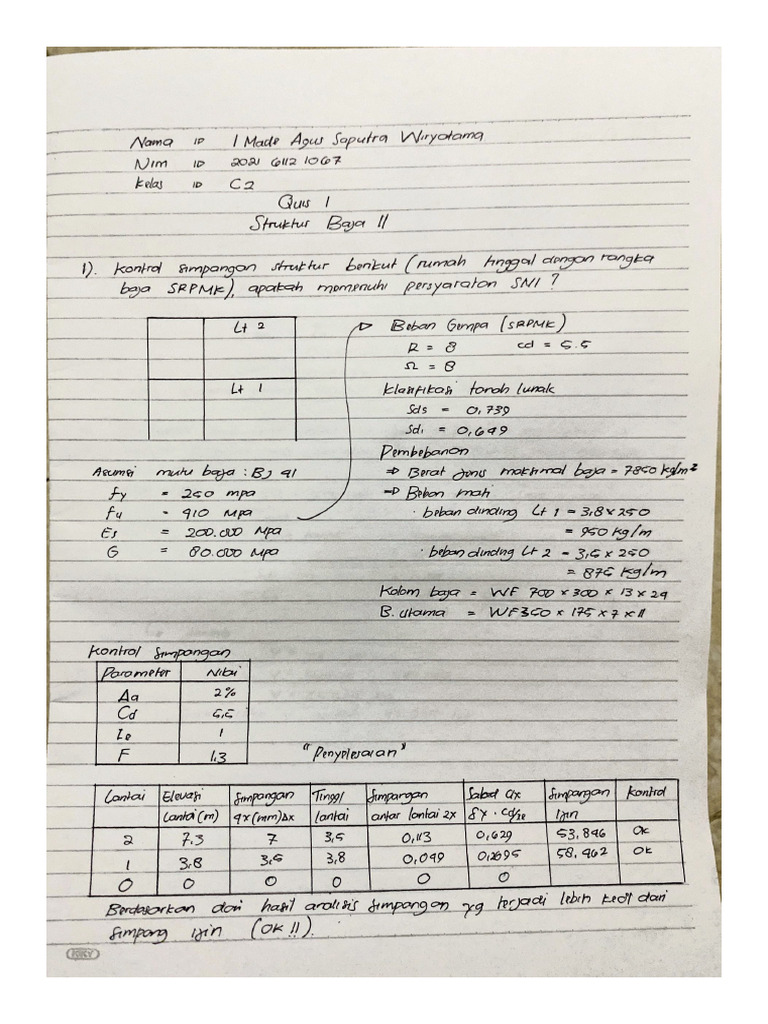 Nama ID I Made Agus Saputra Wiryatama
Nim ID 2021 6112 1067
Kelas ID C2
Quis 1
Struktur Baja II
1). Kontrol simpangan struktur berikut (rumah tinggal dengan rangka
baja SRPMK), apakah memenuhi persyaratan SNI ?
Lt 2
Lt 1
Asumsi mutu baja : Bj 41
fy = 250 mpa
fu = 410 mpa
Es = 200.000 Mpa
G = 80.000 Mpa
Beban Gempa (SRPMK)
R = 8 cd = 5.5
Ω = 8
Klasifikasi tanah lunak
Sds = 0,739
Sd1 = 0,649
Pembebanan
⇒ Berat jenis maksimal baja = 7850 kg/m²
⇒ Beban mati
· beban dinding Lt 1 = 3,8 x 250
= 950 kg/m
· beban dinding Lt 2 = 3,5 x 250
= 875 kg/m
Kolom baja = WF 700 x 300 x 13 x 24
B. utama = WF 350 x 175 x 7 x 11
Kontrol simpangan
Parameter Nilai
Δa 2%
Cd 5,5
Ie 1
F 1.3
"Penyelesaian"
Lantai Elevasi Lantai (m) Simpangan qx (mm) Δx Tinggi lantai Simpangan antar lantai 2x Sabal ax δx . cd/Ie Simpangan Izin Kontrol
2 7.3 7 3,5 0,113 0,629 53,846 Ok
1 3,8 3,5 3,8 0,049 0,2695 58,462 Ok
0 0 0 0 0 0
Berdasarkan dari hasil analisis simpangan yg terjadi lebih kecil dari
simpang izin (OK !!).
KKY